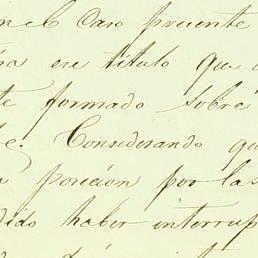 en el Caso presente
ese titulo que
formado sobre
Considerando qu
poricion por las
dido haber interrup